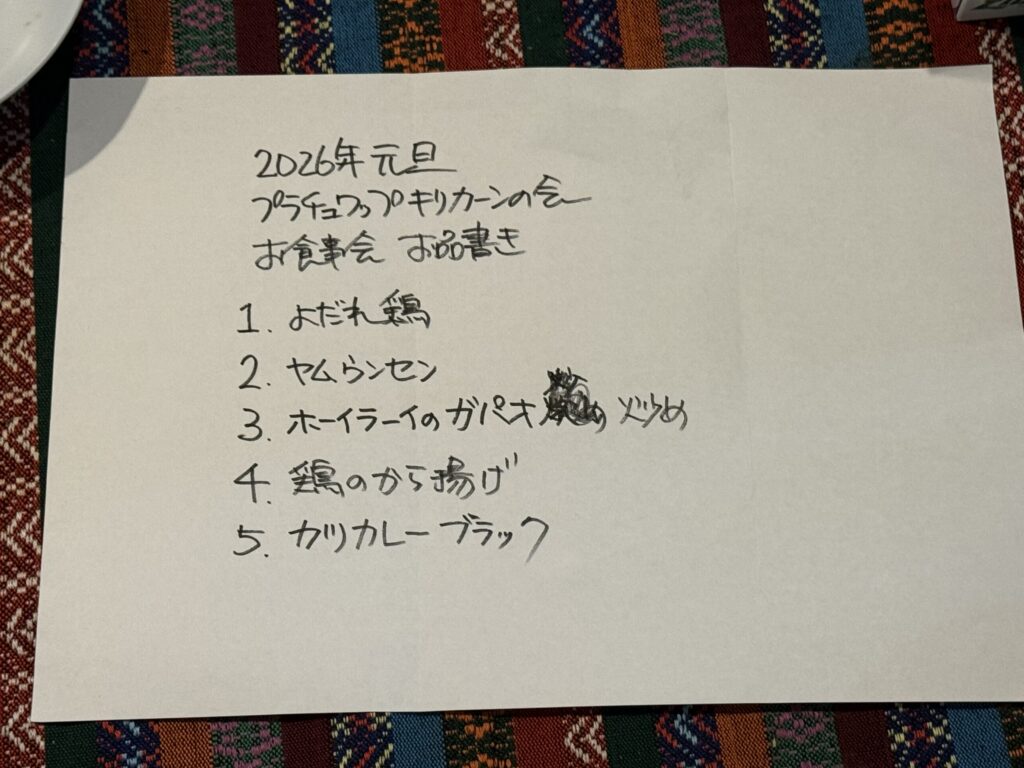 2026年 元旦
プラチュワップキリカーンの会
お食事会 お品書き
1. よだれ鶏
2. ヤムウンセン
3. ホーイラーイのガパオ 炒め
4. 鶏のから揚げ
5. カツカレーブラック